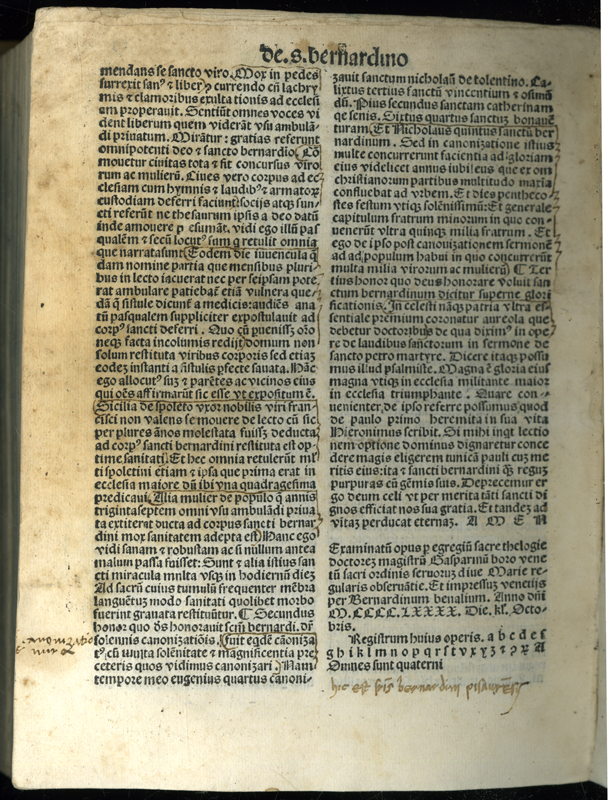 de.s.bernardino
mendans se sancto viro. Mox in pedes
surrexit san⁹ & liber⁊ currendo cū lachry
mis & clamoribus exultationis ad ecclesiā
em properauit. Sentiūt omnes voces vi
dent liberum quem viderāt vsu ambulā-
di priuatum. Mirātur: gratias referunt
omnipotenti deo & sancto bernardio. Cō
mouetur ciuitas tota & fit concursus viro
rum ac mulierū. Ciues vero corpus ad ec-
clesiam cum hymnis & laudib⁹ & armatoꝝ
custodiam deferri faciunt: socijs atqꝫ sun-
eti referūt ne thesaurum ipsis a deo datū
inde amouere p̄sumāt. vidi ego illū pas
qualēm & secū locut⁹ sum q retulit omnia
que narrata sunt. Eodem die iuuencula q̄
dam nomine partia que mensibus pluri-
bus in lecto iacuerat nec per seipsam pote
rat ambulare patiebat̄ etiā vulnera que-
dā q̄ fistule dicunt̄ a medicis: audiēs ana
tū pasqualem suppliciter expostulauit ad
corp⁹ sancti deferri. Quo cū puenissꝫ oro
neqꝫ facta incolumis redijt domum non
solum restituta viribus corporis sed etiaꝫ
eodeꝫ instanti a fistulis pfecte sauata. Hāc
ego allocut⁹ suꝫ & parētes ac vicinos eius
qui oēs affirmarūt sic esse vt expositum ē.
Sicilia de spoleto vxor nobilis viri fran-
cisci non valens se mouere de lecto cū sic
per plures ānos molestata fuissꝫ deducta
ad corp⁹ sancti bernardini restituta est op-
time sanitati. Et hec omnia retulerūt ml̄
ti spoletini etiam & ipsa que prima erat in
ecclesia maiore dū ibi vna quadragesima
predicaui. Alia mulier de populo q̄ annis
trigintaseptem omni vsu ambulādi priua
ta extiterat ducta ad corpus sancti bernar
dini mox sanitatem adepta est. Hanc ego
vidi sanam & robustam ac si nullum antea
malum passa fuisset: Sunt & alia istius san
cti miracula multa vsqꝫ in hodiernū dieꝫ
Ad sacrū cuius tumulū frequenter mēbra
languētuꝫ modo sanitati quolibet morbo
fuerint granata restituūtur. ¶ Secundus
honor quo dn̄s honorauit scm̄ bernardi. dr̄
solennis canonizatiōis. Sunt eqdē cāoniza
t⁹ cū multa solēnitate & magnificentia pre
ceteris quos vidimus canonizari. Nam
tempore meo eugenius quartus canoni-
zauit sanctum nicholaū de tolentino. Ca-
lixtus tertius sanctū vincentium & osimū
dū. Pius secundus sanctam catherinam
de senis. Sixtus quartus sanctuꝫ bonauē
turam. Et Nicholaus quintus sanctū ber
nardinum. Sed in canonizatione istius
multe concurrerunt facientia ad gloriam
eius videlicet annus iubilei quo ex oīm
christianorum partibus multitudo maxia
confluebat ad vrbem. Et dies penthecо-
stes festum vtiqꝫ solēnissimū: Et generale
capitulum fratrum minorum in quo con-
uenerūt vltra quinqꝫ milia fratrum. Et
ego de ipso post canonizationem sermonē
ad ad populum habui in quo concurrerūt
multa milia virorum ac mulierū ¶ Ter
tius honor quo deus honorare voluit san
ctum bernardinum dicitur superne glori
ficationis. In celesti nāqꝫ patria vltra es-
sentiale premium coronatur aureola que
debetur doctoribus de qua diximꝰ in ope
re de laudibus sanctorum in sermone de
sancto petro martyre. Dicere itaqꝫ possu
mus illud psalmiste. Magna ē gloria eius
magna vtiqꝫ in ecclesia militante maior
in ecclesia triumphante. Quare con-
uenienter de ipso referre possumus quod
de paulo primo heremita in sua vita
Hieronimus scribit. Si mihi ingt lectio
nem optione dominus dignaretur conce
dere magis eligerem tunicā pauli cuꝫ me
ritis eius: ita & sancti bernardini q̄ reguꝫ
purpuras cū gēmis suis. Deprecemur er
go deum celi vt per merita tāti sancti di
gnos efficiat nos sua gratia. Et tandeꝫ ad
vitaꝫ perducat eternaꝫ. A M E N
Examinatū opus p egregiū sacre theologie
doctoreꝫ magistrū Gasparinū boro vene
tū sacri ordinis seruoruꝫ diue Marie re-
gularis obseruātie. Et impressuꝫ venetijs
per Bernardinum benalium. Anno dn̄i
M.CCCC.LXXXX. Die. kl̄. Octo-
bris.
Registrum huius operis. a b c d e f
g h i k l m n o p q r s t v x y z & ꝯ ꝝ A
Omnes sunt quaterni
hic est fr̄is bernardini pisauren̄